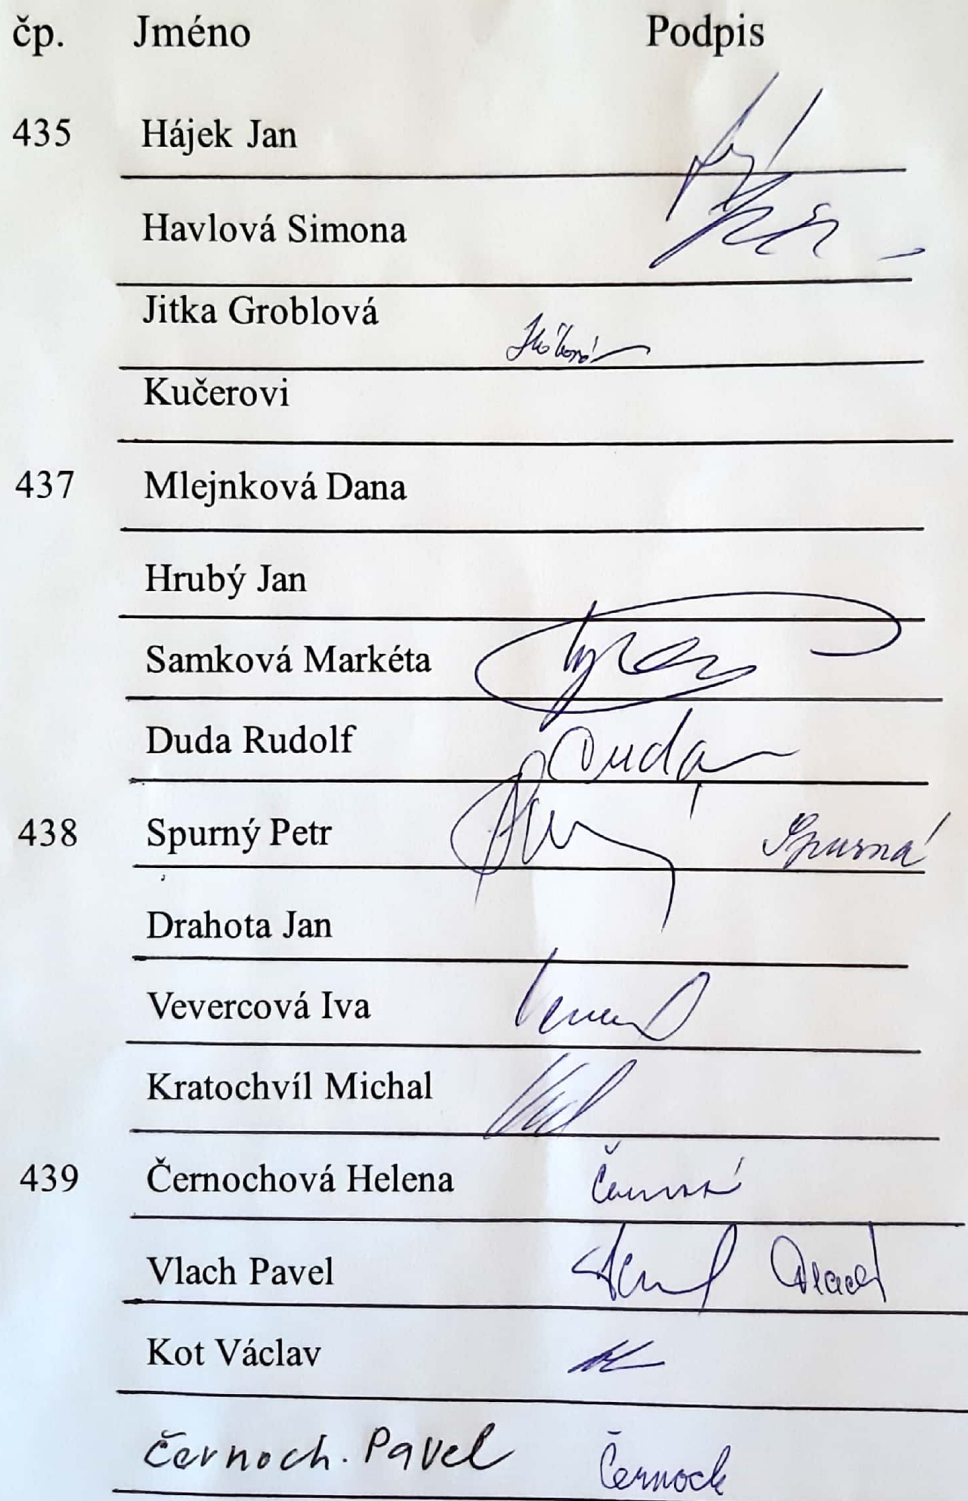 čp. Jméno Podpis
435 Hájek Jan
Havlová Simona
Jitka Groblová
Kučerovi
437 Mlejnková Dana
Hrubý Jan
Samková Markéta
Duda Rudolf Duda
438 Spurný Petr Spurná
Drahota Jan
Vevercová Iva
Kratochvíl Michal
439 Černochová Helena
Vlach Pavel Vlach
Kot Václav
Černoch. Pavel Černoch